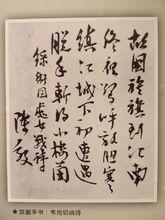 故国旌旗到江南
终夜惊呼敌胆寒
镇江城下初遭遇
脱手斩得小楼兰
录卫岗处女战诗
陈毅
★陈毅手书：韦岗初战诗